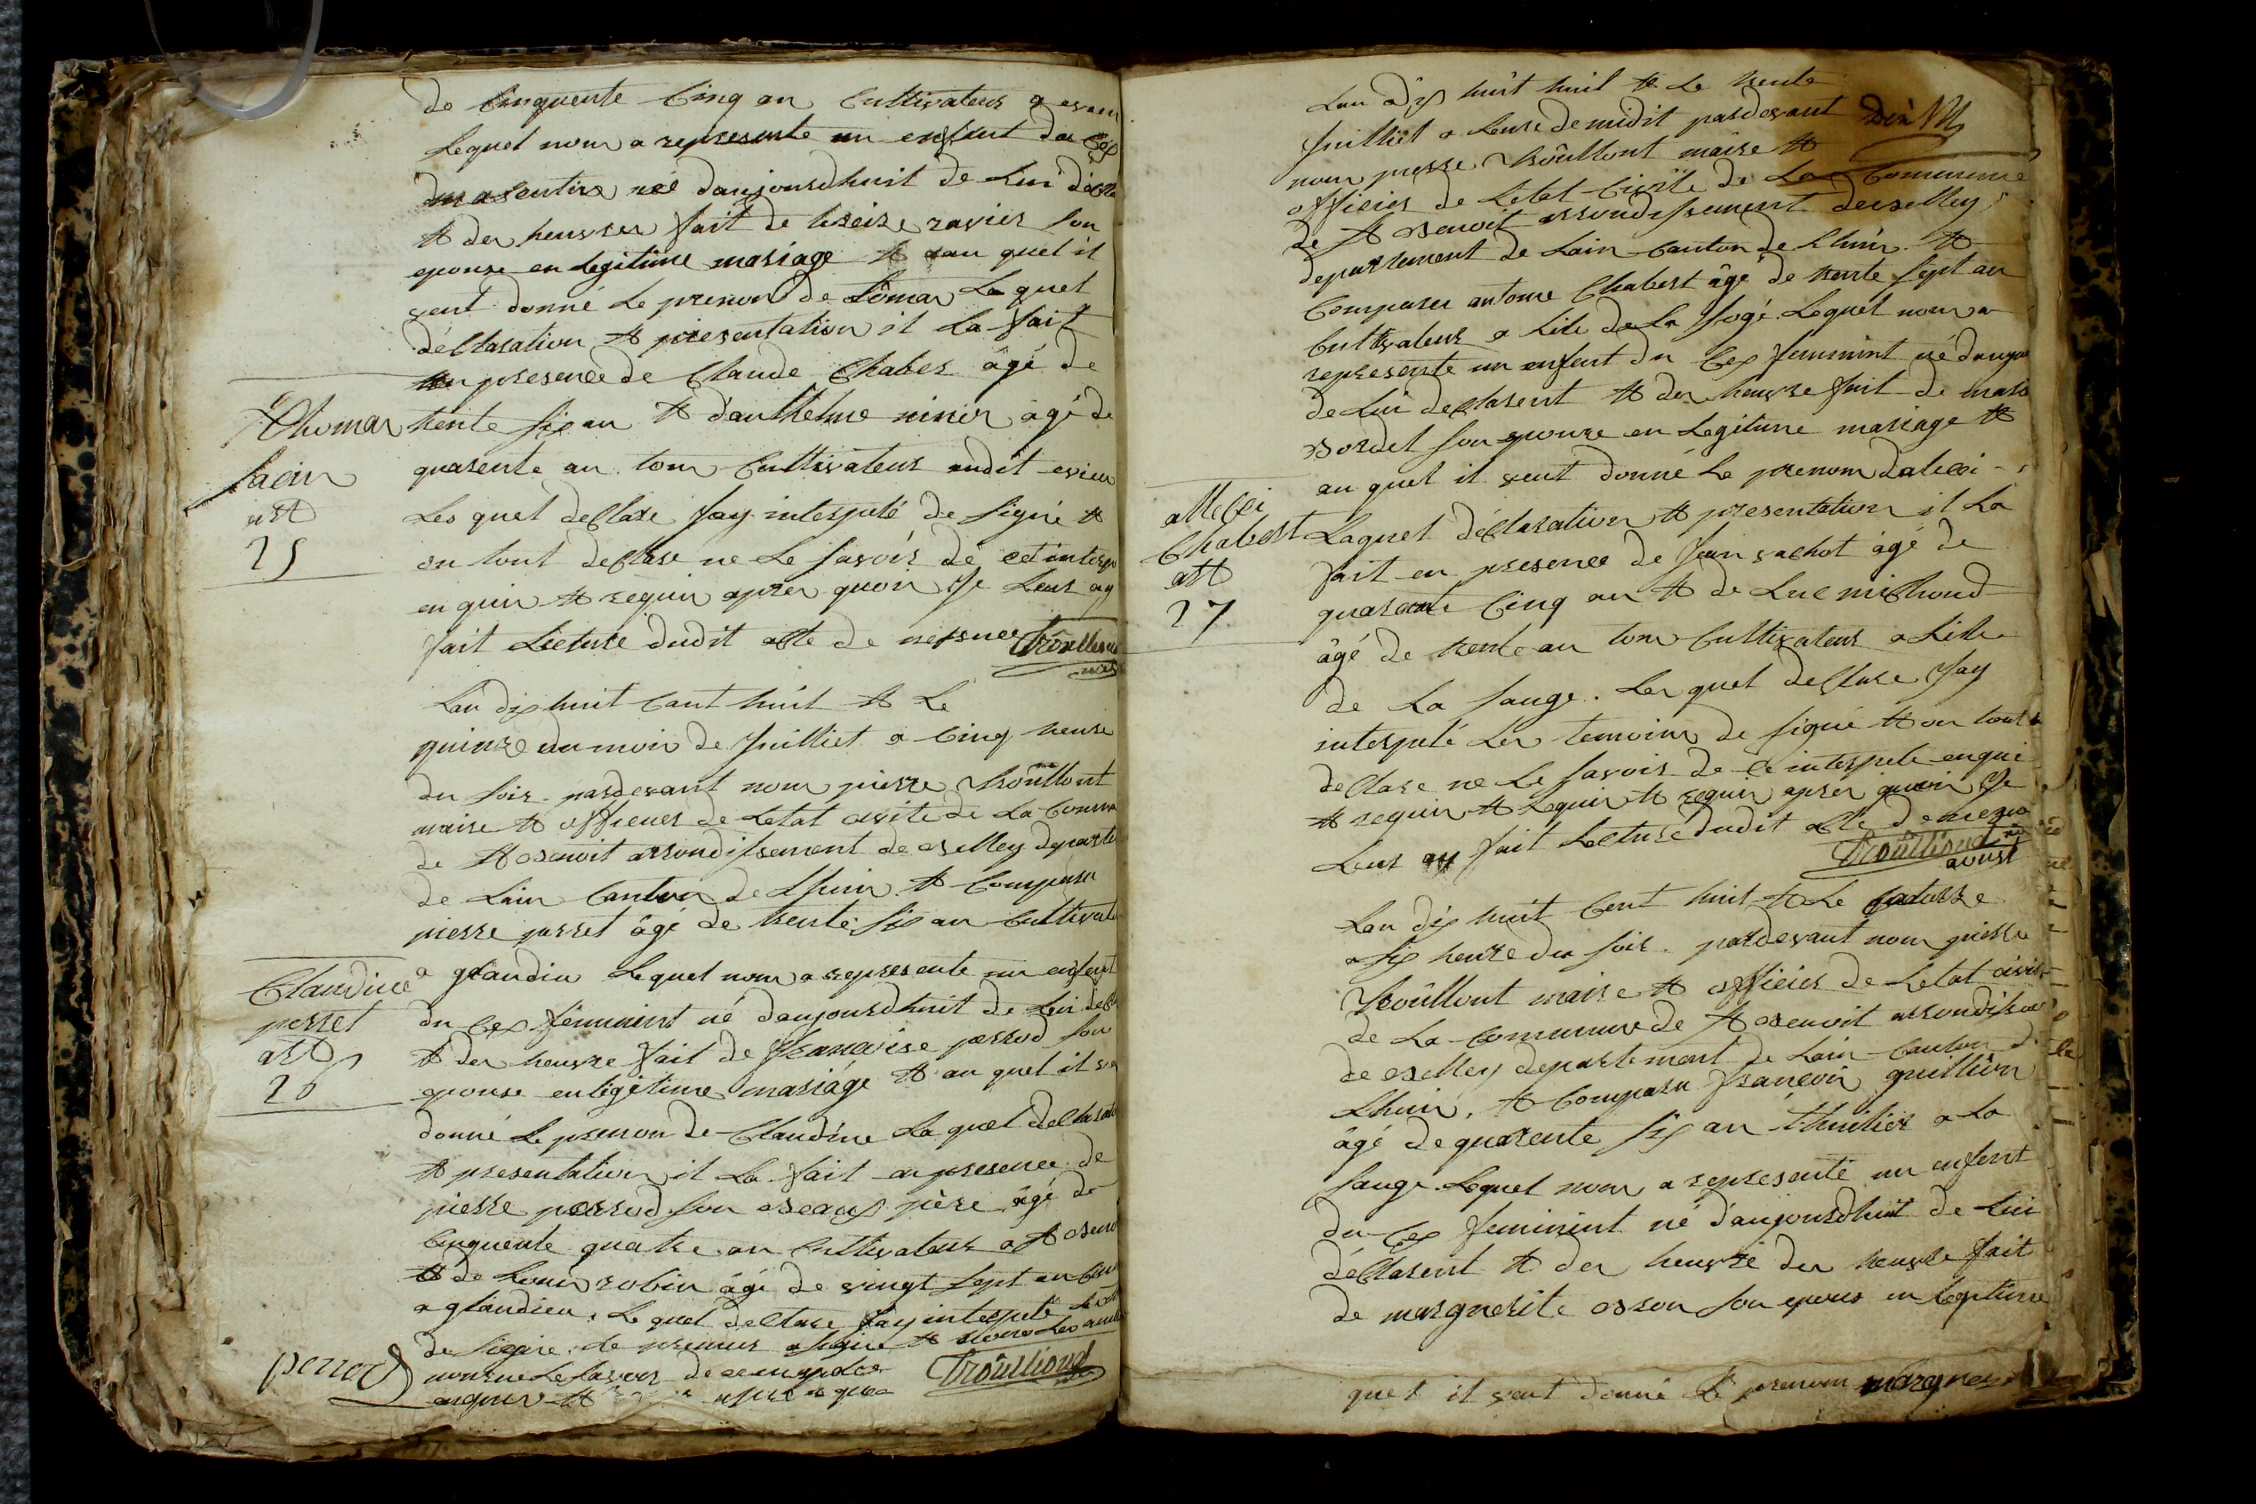 de Cinquente Cinq an Cultivateur a evieu
Lequel nous a represente un enfent du Cex
masentire née daujourdhuit de Lui
et des heuvres fait de treise ravier son
epouse en Legitime mariage et auquel il
veut donné Le prenon de tômas Laquel
déClaration et presentation il La fait
en presence de Claude Chaber âgé de
Thomas
trente six an et danthelme ninier âgé de
quarente an tous Cultivateur audit evieu
act
25
Les quel deClare jay interputé de signé et
on tout deClare ne Le savoir de cet interp
en quis et requis apres quoi Je Leur ay
fait Lecture dudit acte de nessuee Troulliond
Lan dix huit Cent huit et Le
quinze du moi de Juilliet a Cinq heure
du soir pardevant nous pierre troûlliont
maire et officier de Letat civile de La Comm
de St Benoit arrondissement de Belley departe
de Lain Canton de Lhuis et Comparu
pierre perret âgé de trente six an Cultivate
Claudine
perret
act
26
a glandieu Lequel nous a represente un enfent
du Cex feminint né daujourdhuit de Lui decla
et des heuvre fait de françoise perrod son
epouse en legitime mariage et au quel il veu
donné Le prenon de Claudine La quel deClarati
et presentation il La fait en presence de
pierre perrod son Beaux père âgé de
Cinquente quatre an Cultivateur a St Benoi
et de Louis robin âgé de vingt sept an Cu
a glandieu. Le quel deClare jay interputé
de signé le premier a signé et
perrod
Troulliond
Lan dix huit huit et Le trente
Juilliet a Leure de midit pardevant
nous pierre troûlliont maire et
officier de Letat Civile de La Commune
de St Benoit arrondissement de Belley
departement de Lain Canton de Lhuis et
Comparu antoine Chabert âgé de trente sept an
Cultivateur a Lile de La sogé Lequel nous a
represente un enfent du Cex feminint né daujou
de Lui deClarent et des heuvre fait de marie
Bordel son epouse en Legitime mariage et
au quel il veut donné Le prenom dalexi
allexi
Chabert
act
27
Laquel déClaration et presentation il La
fait en presence de Jean vachot âgé de
quarente Cinq an et de Luc michoud
âgé de trente an tous Cultivateur a Lile
de La sauge. Les quel deClare Jay
interputé Les temoins de signé et on tout
deClare ne Le savoir de ce interpele enqui
et requis et Lequis et requis après quoi Je
Leur ay fait Lecture dudit acte de
Troûlliond
avust
Lan dix huit Cent huit et Le catorze
a six heure du soir pardevant nous pierre
troûlliont maire et officier de Letat civil
de La Commune de St Benoit arrondisem
de Belley departement de Lain Canton de
Lhuis, et Comparu françois guilliôn
âgé de quarente six an thuilier a La
sauge Lequel nous a represente un enfent
du Cex feminint né daujourdhuit de Lui
déClarent et des heuvre des heuvre fait
de marguerite Bron son epous en Legitime
quel il veut donné Le prenom